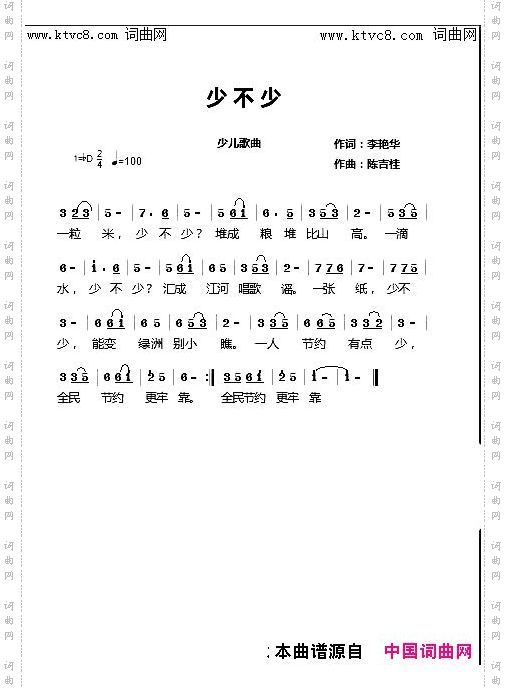 www.ktvc8.com 词曲网 www.ktvc8.com 词曲网
少不少
少儿歌曲 作词：李艳华
1=D 2/4 ♩=100 作曲：陈吉桂
3 2 3 | 5 - | 7 . 6 | 5 - | 5 6 1 | 6 . 5 | 3 5 3 | 2 - | 5 3 5 |
一粒 米，少 不 少？堆成 粮 堆 比山 高。一滴
6 - | 1 . 6 | 5 - | 5 6 1 | 6 5 | 3 5 3 | 2 - | 7 7 6 | 7 - | 7 7 5 |
水，少 不 少？汇成 江河 唱歌 谣。一张 纸，少不
3 - | 6 6 1 | 6 5 | 3 5 3 | 2 - | 3 3 5 | 6 6 5 | 3 3 2 | 3 - |
少，能变 绿洲 别小 瞧。一人 节约 有点 少，
3 3 5 | 6 6 1 | 2 5 | 6 - :| 3 5 6 1 | 2 5 | 1 - | 1 - ||
全民 节约 更牢 靠。全民节约 更牢 靠
：本曲谱源自 中国词曲网
词曲网
词曲网
词曲网
词曲网
词曲网
词曲网
词曲网
词曲网
词曲网
词曲网
词曲网
词曲网
词曲网
词曲网